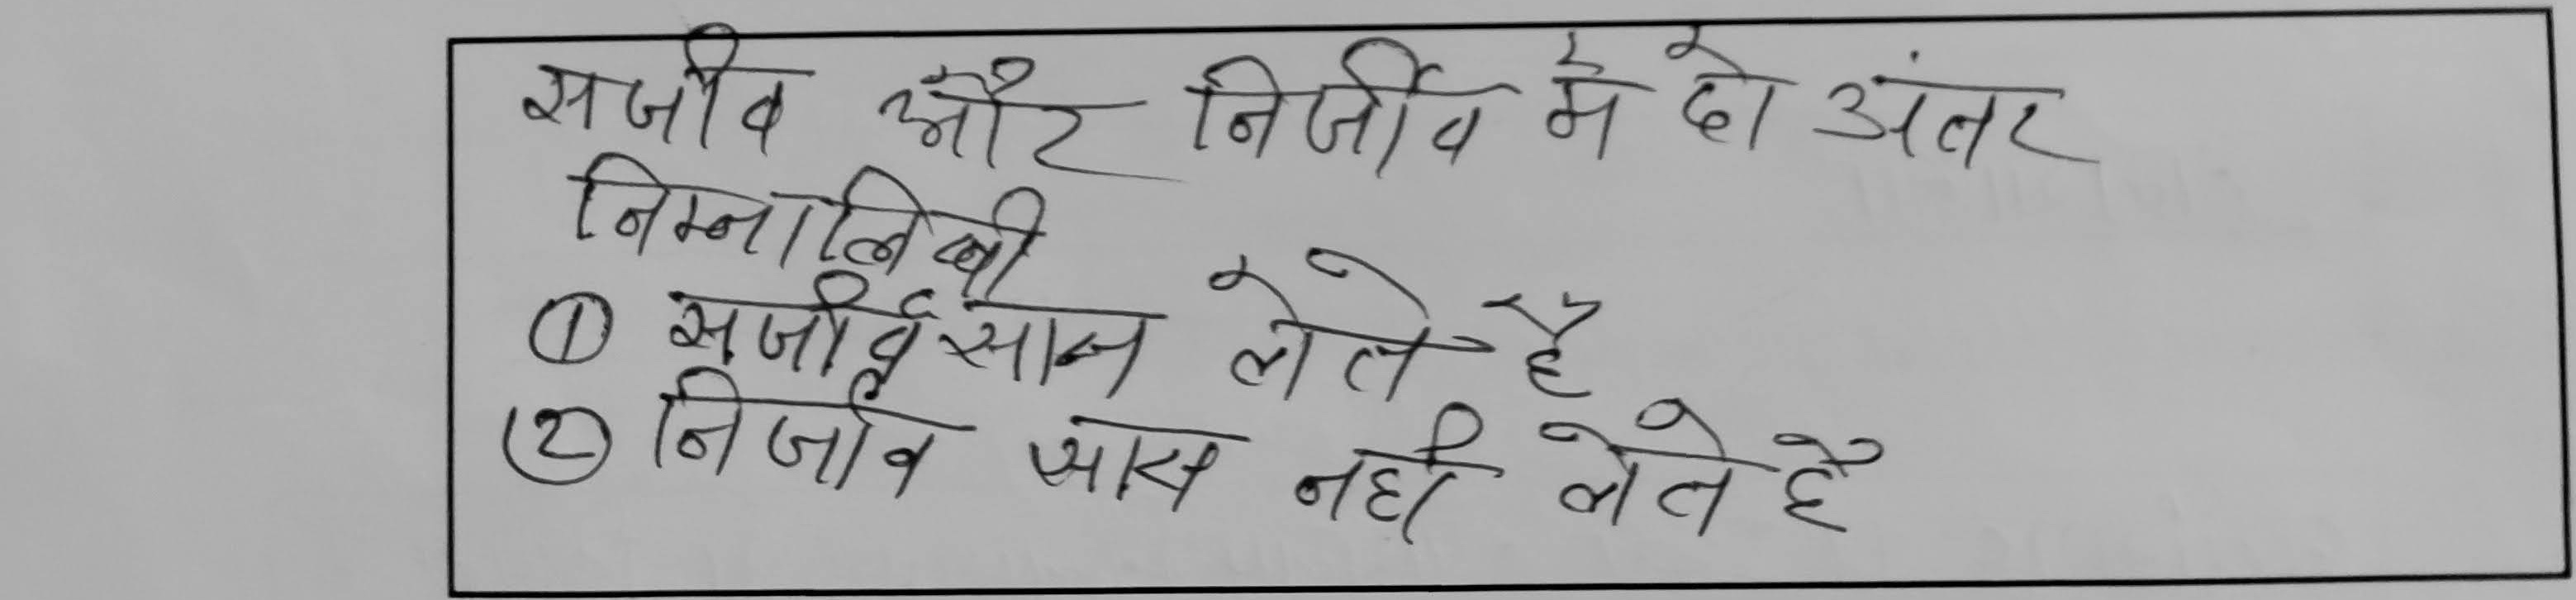 सजीव और निर्जीव में दो अंतर
निम्नालिखी
① सजीर्व सास लेते है
② निजीव सास नही लेते है